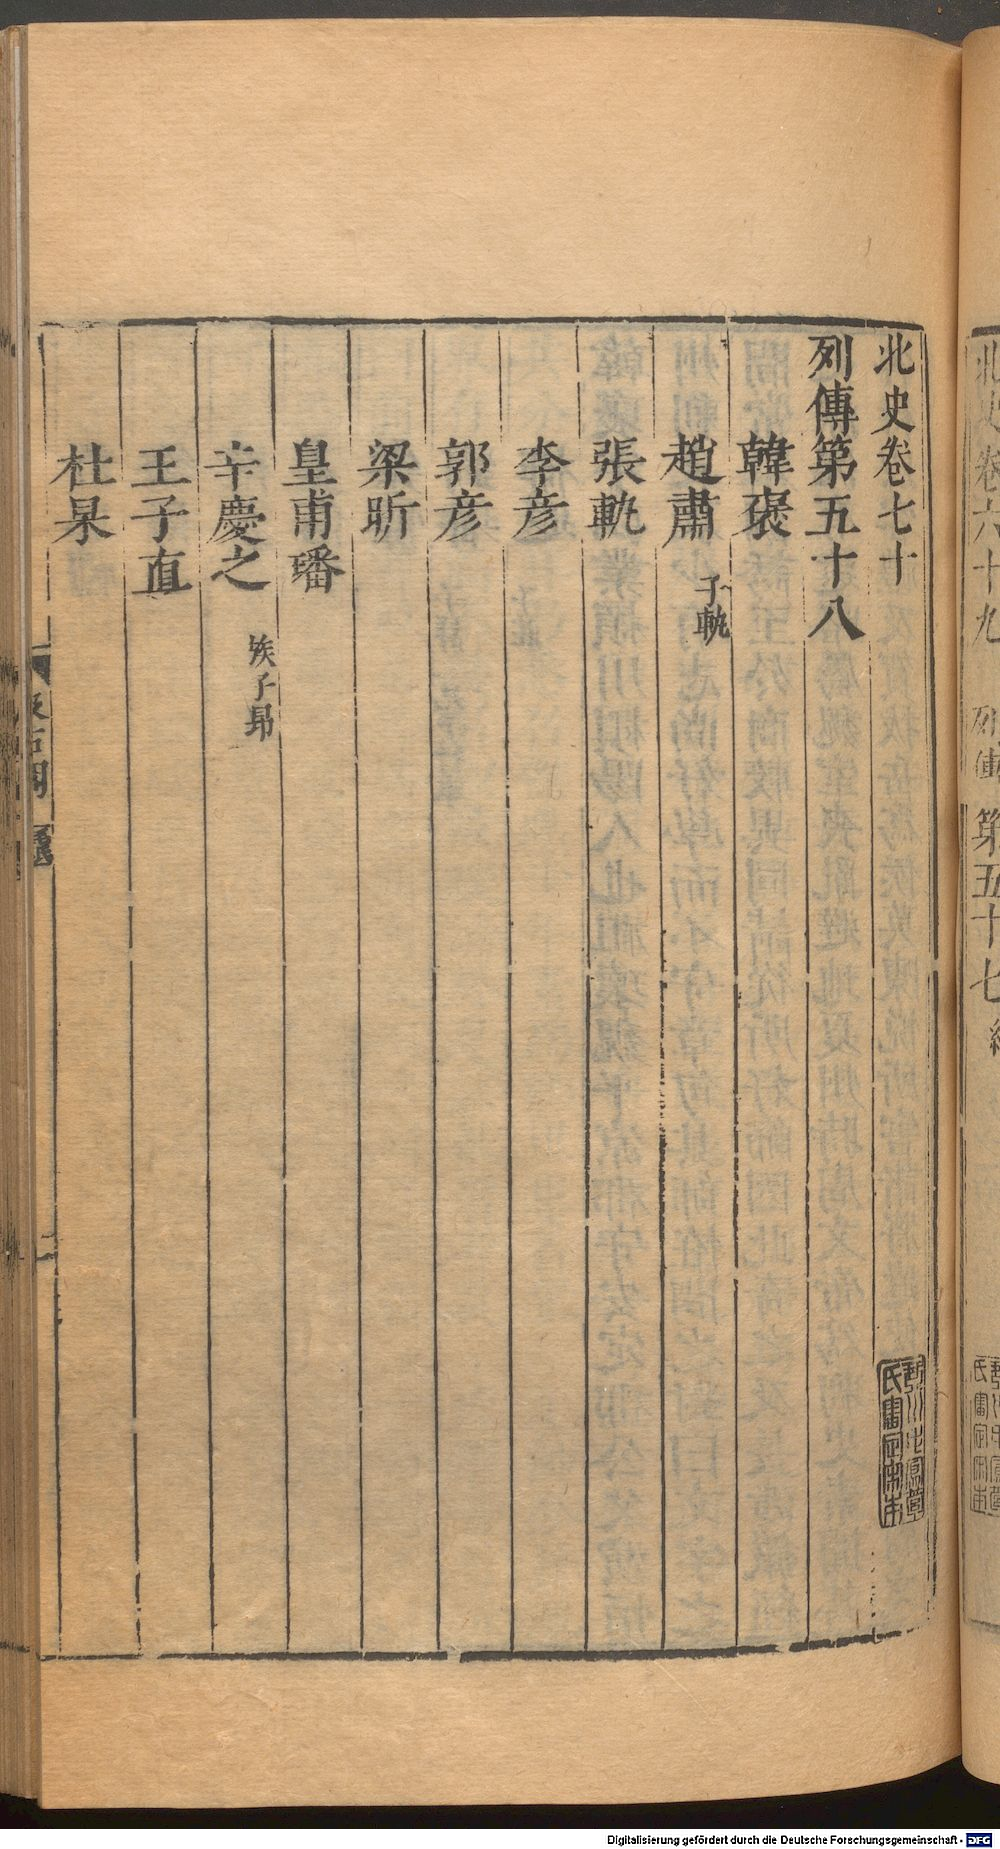 北史卷七十
列傳第五十八
韓褒
趙肅 子軌
張軌
李彦
郭彦
梁昕
皇甫璠
辛慶之 族子昂
王子直
杜杲
汲古閣
北史卷六十九 列傳第五十七 終
琴川毛鳳苞
氏審定宋本
Digitalisierung gefördert durch die Deutsche Forschungsgemeinschaft - DFG